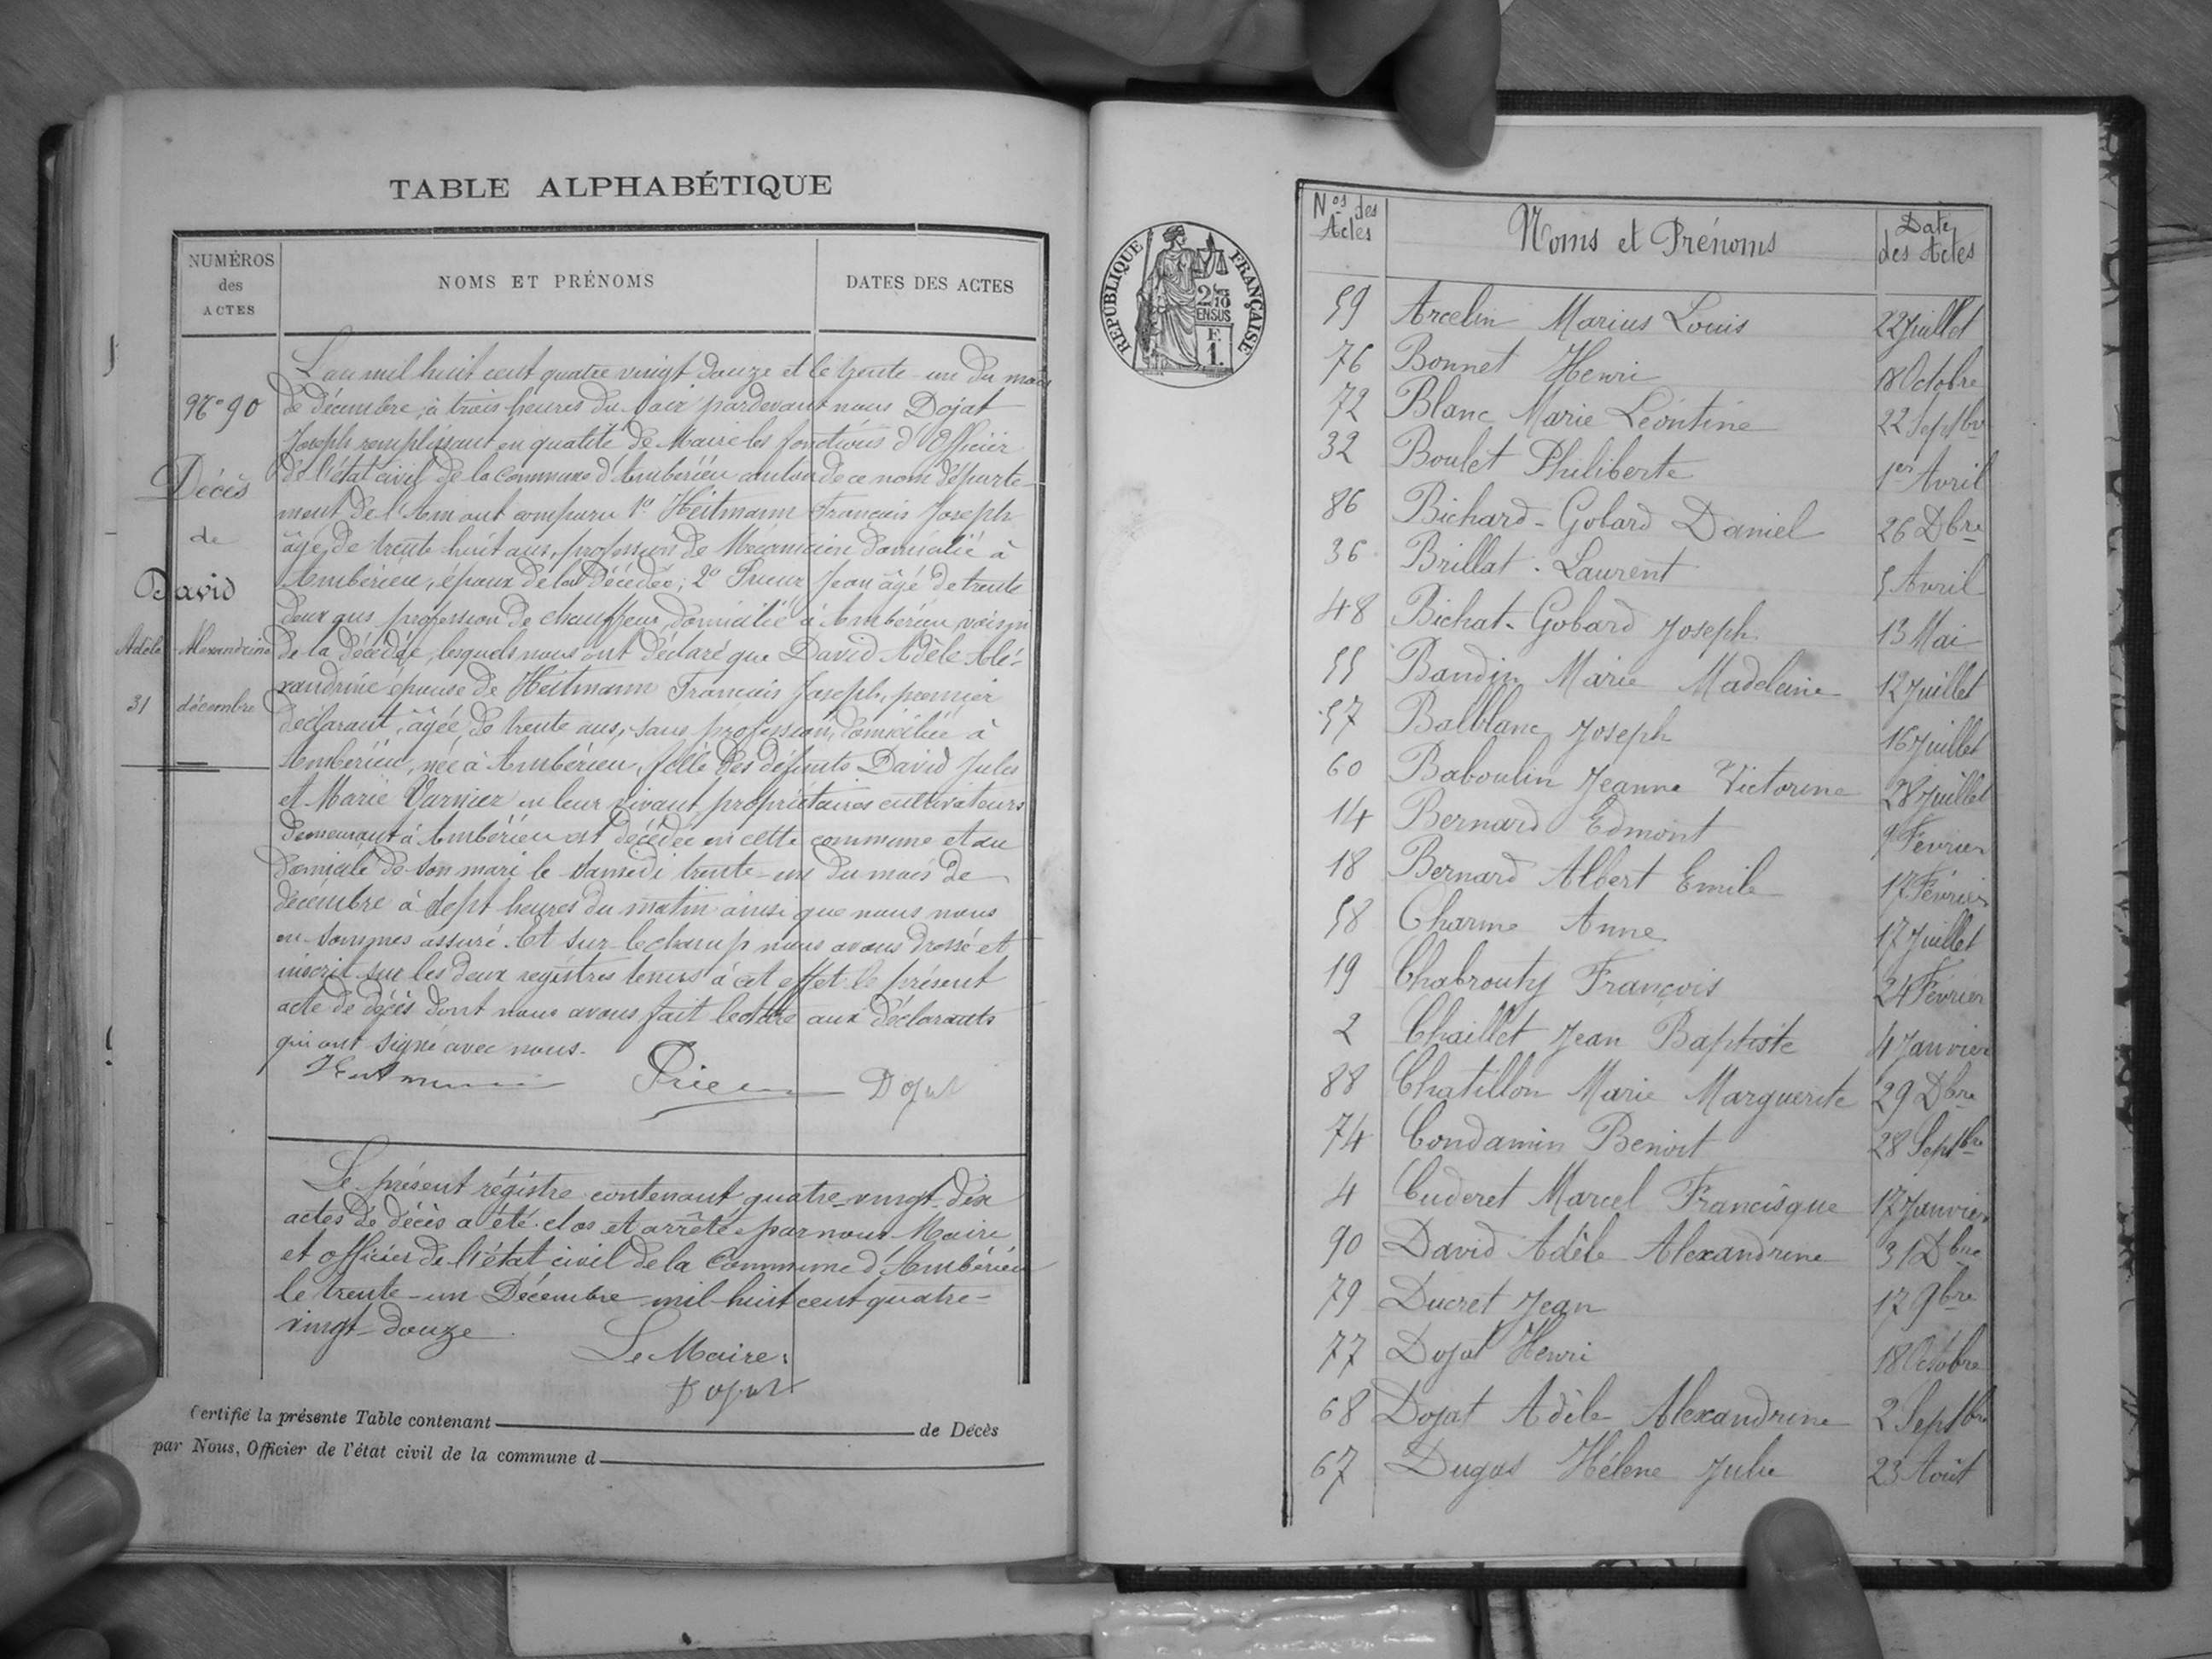 TABLE ALPHABÉTIQUE
NUMÉROS
des
ACTES
NOMS ET PRÉNOMS
DATES DES ACTES
N° 90
Décès
de
David
Adèle Alexandrine
31 décembre
L'an mil huit cent quatre vingt douze et le trente-un du mois
de décembre, à trois heures du soir pardevant nous Dojat
Joseph remplissant en qualité de Maire les fonctions d'Officier
de l'état civil de la commune d'Ambérieu canton de ce nom départe-
ment de l'Ain ont comparu 1° Heitmann François Joseph
âgé de trente huit ans, profession de Mécanicien domicilié à
Ambérieu, époux de la Décédée; 2° Prieur Jean âgé de trente
deux ans profession de chauffeur, domicilié à Ambérieu voisin
de la décédée, lesquels nous ont déclaré que David Adèle Alé-
xandrine épouse de Heitmann François Joseph, premier
déclarant, âgée de trente ans, sans profession, domiciliée à
Ambérieu, née à Ambérieu, fille des défunts David Jules
et Marie Varnier en leur vivant propriétaires cultivateurs
demeurant à Ambérieu est décédée en cette commune et au
domicile de son mari le samedi trente-un du mois de
décembre à sept heures du matin ainsi que nous nous
en sommes assuré. Et sur le champ nous avons dressé et
inscrit sur les deux registres tenus à cet effet le présent
acte de décès dont nous avons fait lecture aux déclarants
qui ont signé avec nous.
Heitmann Prieur Dojat
Le présent régistre contenant quatre-vingt-dix
actes de décès a été clos et arrêté par nous Maire
et officier de l'état civil de la Commune d'Ambérieu
le trente-un Décembre mil huit cent quatre-
vingt-douze.
Le Maire:
Dojat
Certifié la présente Table contenant de Décès
par Nous, Officier de l'état civil de la commune d
REPUBLIQUE FRANÇAISE
2/10
EN SUS
F.
1.
Nos des Actes Noms et Prénoms Date des Actes
59 Arcelin Marius Louis 22 Juillet
76 Bonnet Henri 18 Octobre
72 Blanc Marie Léontine 22 Septbre
32 Boulet Philiberte 1er Avril
86 Bichard-Gobard Daniel 26 Dbre
36 Brillat-Laurent 5 Avril
48 Bichat-Gobard Joseph 13 Mai
55 Baudin Marie Madeleine 12 Juillet
57 Balblanc Joseph 16 Juillet
60 Baboulin Jeanne Victorine 28 Juillet
14 Bernard Edmont 9 Février
18 Bernard Albert Emile 17 Février
58 Charme Anne 17 Juillet
19 Chabrouty François 24 Février
2 Chaillet Jean Baptiste 4 Janvier
88 Chatillon Marie Marguerite 29 Dbre
74 Condamin Benoit 28 Septbre
4 Cuderet Marcel Francisque 17 Janvier
90 David Adèle Alexandrine 31 Dbre
79 Ducret Jean 17 9bre
77 Dojat Henri 18 Octobre
68 Dojat Adèle Alexandrine 2 Septbre
67 Dugas Hélène Julie 23 Août